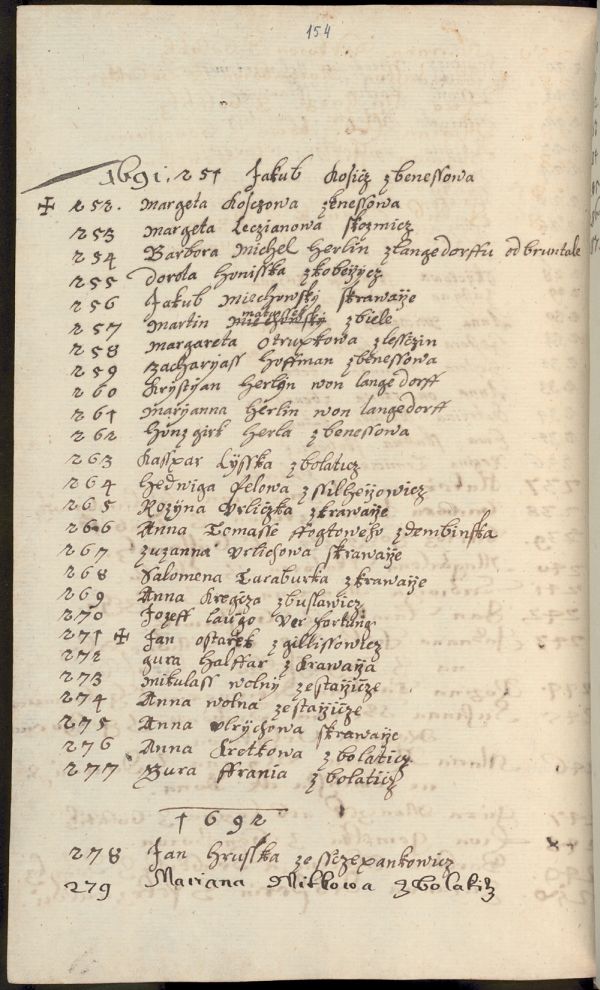 154
1691. 251 Jakub Kosicz z benessowa
252. margeta Kosczowa z benessowa
253 margeta Leczianowa skozmicz
254 Barbora michel herlin z langedorffu od bruntale
255 dorota honisska z kobeyicz
256 Jakub miechowsky skrawaÿe
257 martin matussek z biele
258 margareta otrupkowa z lessczin
259 zacharyass hoffman z benessowa
260 Krystyan herlin won langedorff
261 maryanna herlin won langedorff
262 honz girk herla z benessowa
263 Kasspar Lysska z bolaticz
264 hedwiga felowa z ssilheÿowicz
265 Rozyna Vrliczka z krawaÿe
266 Anna Tomasse ffogtoweho z dembinska
267 zuzanna Vrlichowa skrawaÿe
268 Salomena Taraburka z krawaÿe
269 Anna Kregcza z buslawicz
270 Jozeff
271 Jan ostarek z gilissowicz
272 gura halffar z Krawaÿa
273 mikulass wolny ze staÿicze
274 Anna wolna ze staÿicze
275 Anna Vlrychowa skrawaÿe
276 Anna Kretkowa z bolaticz
277 Gura ffrania z bolaticz
1692
278 Jan hrusska ze ssczepankowicz
279 Mariana Mitkowa z bolatitz